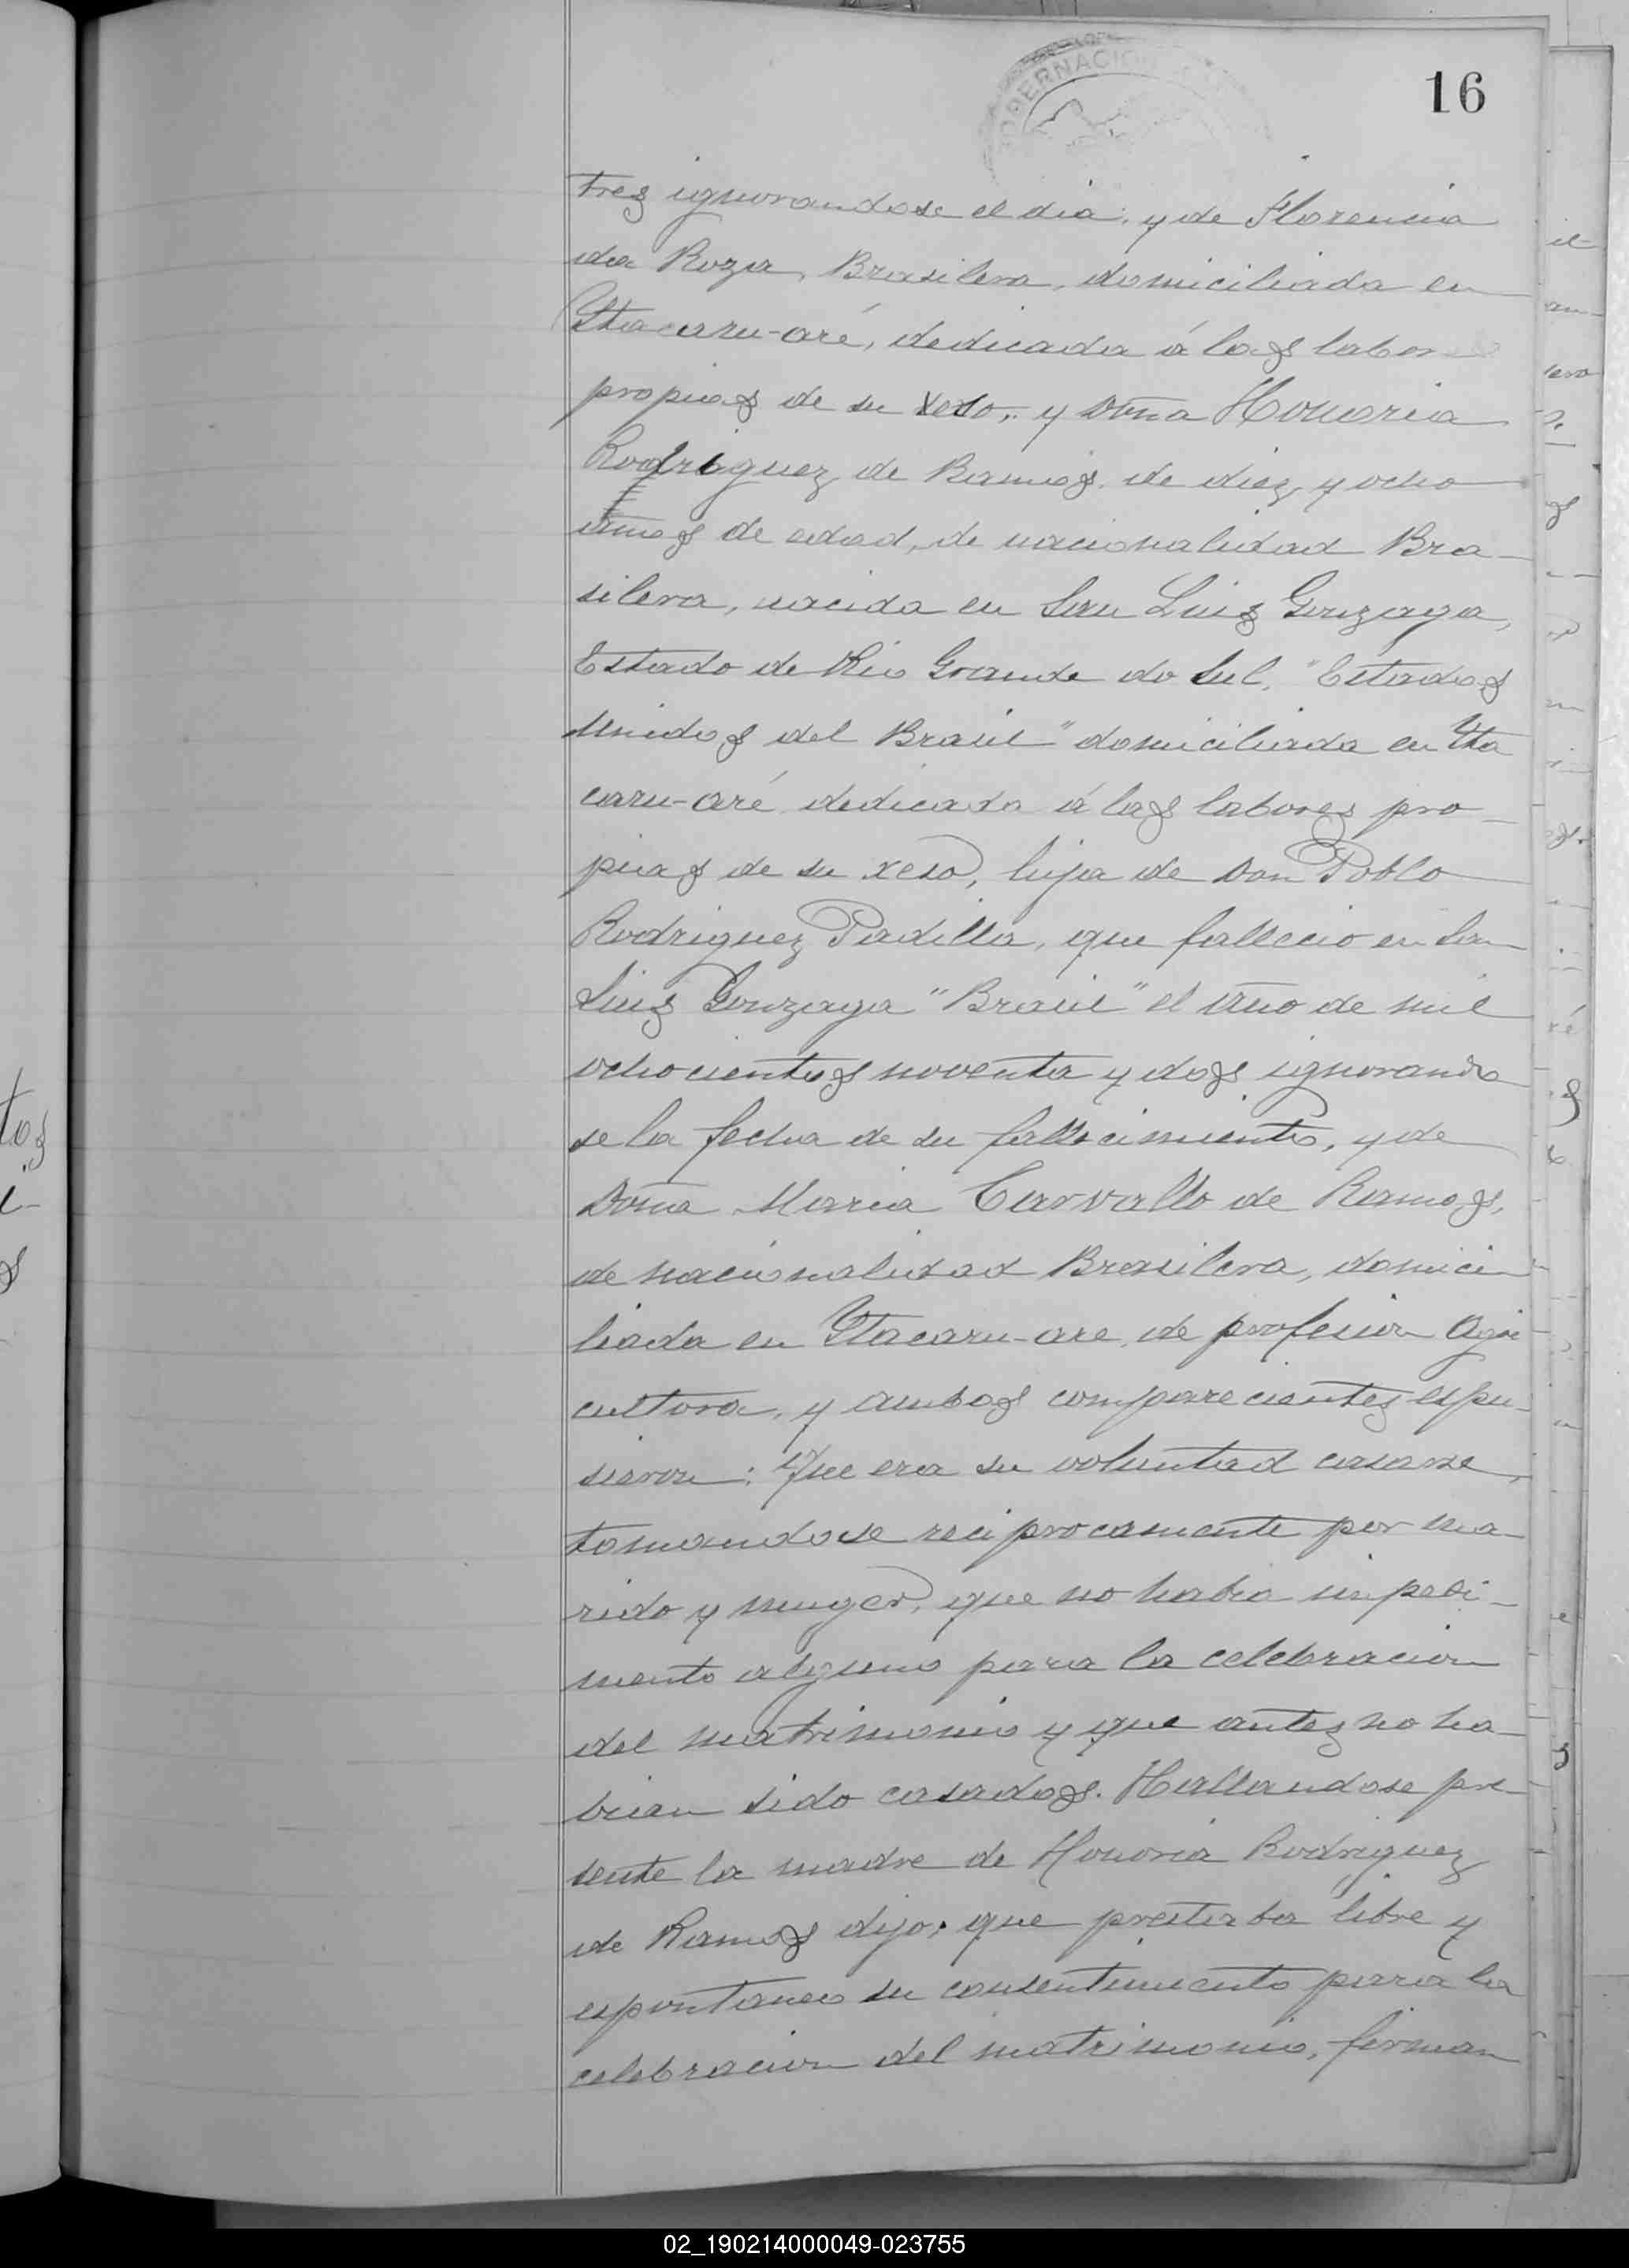 GOBERNACION
16
tres ignorandose el dia; y de Florencia
da Roza, Brasilera, domiciliada en
Ytacaru-aré, dedicada á las labores
propias de su xeso; y Doña Honoria
Rodriguez de Ramos, de diez y ocho
años de edad, de nacionalidad Bra-
silera, nacida en San Luis Gonzaga,
Estado de Rio Grande do Sul, "Estados
Unidos del Brasil" domiciliada en Yta
caru-aré dedicada á las labores pro-
pias de su xeso, hija de Don Pablo
Rodriguez Padilla, que fallecio en San
Luis Gonzaga "Brasil" el año de mil
ochocientos noventa y dos ignorando
se la fecha de su fallecimiento, y de
Doña Maria Carvallo de Ramos,
de nacionalidad Brasilera, domici-
liada en Ytacaru-are, de profesion Agri
cultora, y ambos comparecientes espu-
sieron: Que era su voluntad casarse,
tomandose reciprocamente por ma-
rido y muger, que no habia impedi-
mento alguno para la celebracion
del matrimonio y que antes no ha-
bian sido casados. Hallandose pre-
sente la madre de Honoria Rodriguez
de Ramos dijo: que prestaba libre y
espontaneo su consentimiento para la
celebracion del matrimonio, firman
02_190214000049-023755